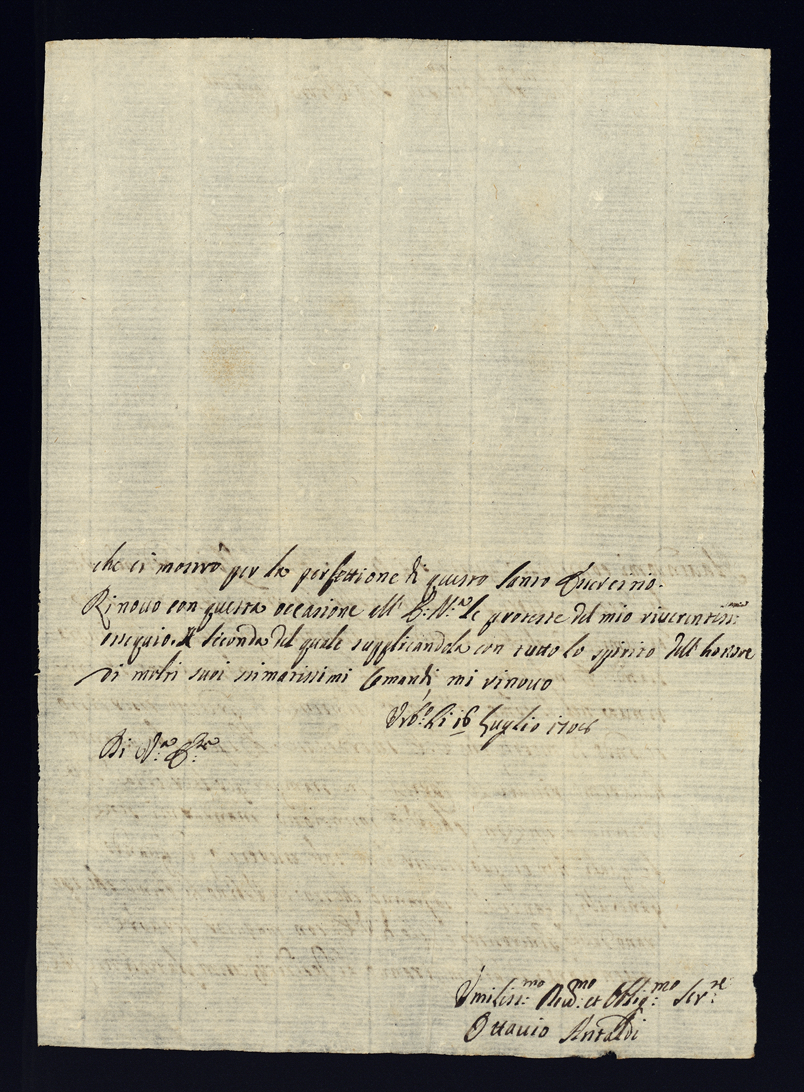 che ci mostrò per la perfettione di questo santo
Rinouo con questa occasione all' E: V:ª le proteste del mio riuerentiss:mo
ossequio. A seconda del quale supplicandola con tutto lo spirito dell' honore
di molti suoi stimatissimi Comandi, mi rinouo
Urb:º li 16 Luglio
Di V:ª
Vmiliss:mo Deu:mo et Oblig:mo Ser:re
Ottauio Antaldi